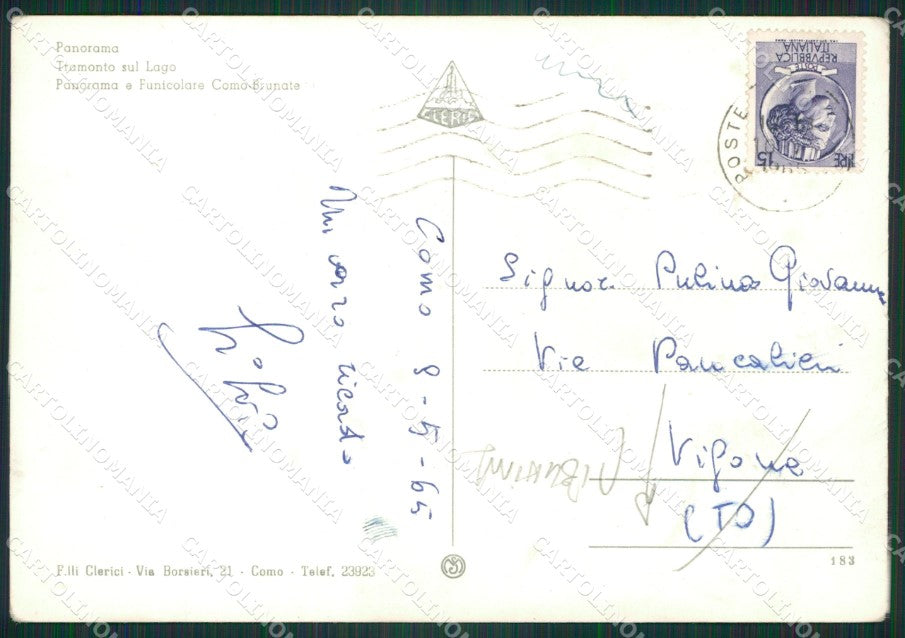 Panorama
Tramonto sul Lago
Panorama e Funicolare Como-Brunate
CLERICI
POSTE
REPVBBLICA
ITALIANA
POSTE
LIRE 15
Como 9-5-65
Un caro ricordo
Signor. Pulina Giovanni
Via Pancalieri
Vigone
(TO)
F.lli Clerici - Via Borsieri, 21 - Como - Telef. 23923
183
CARTOLINOMANIA